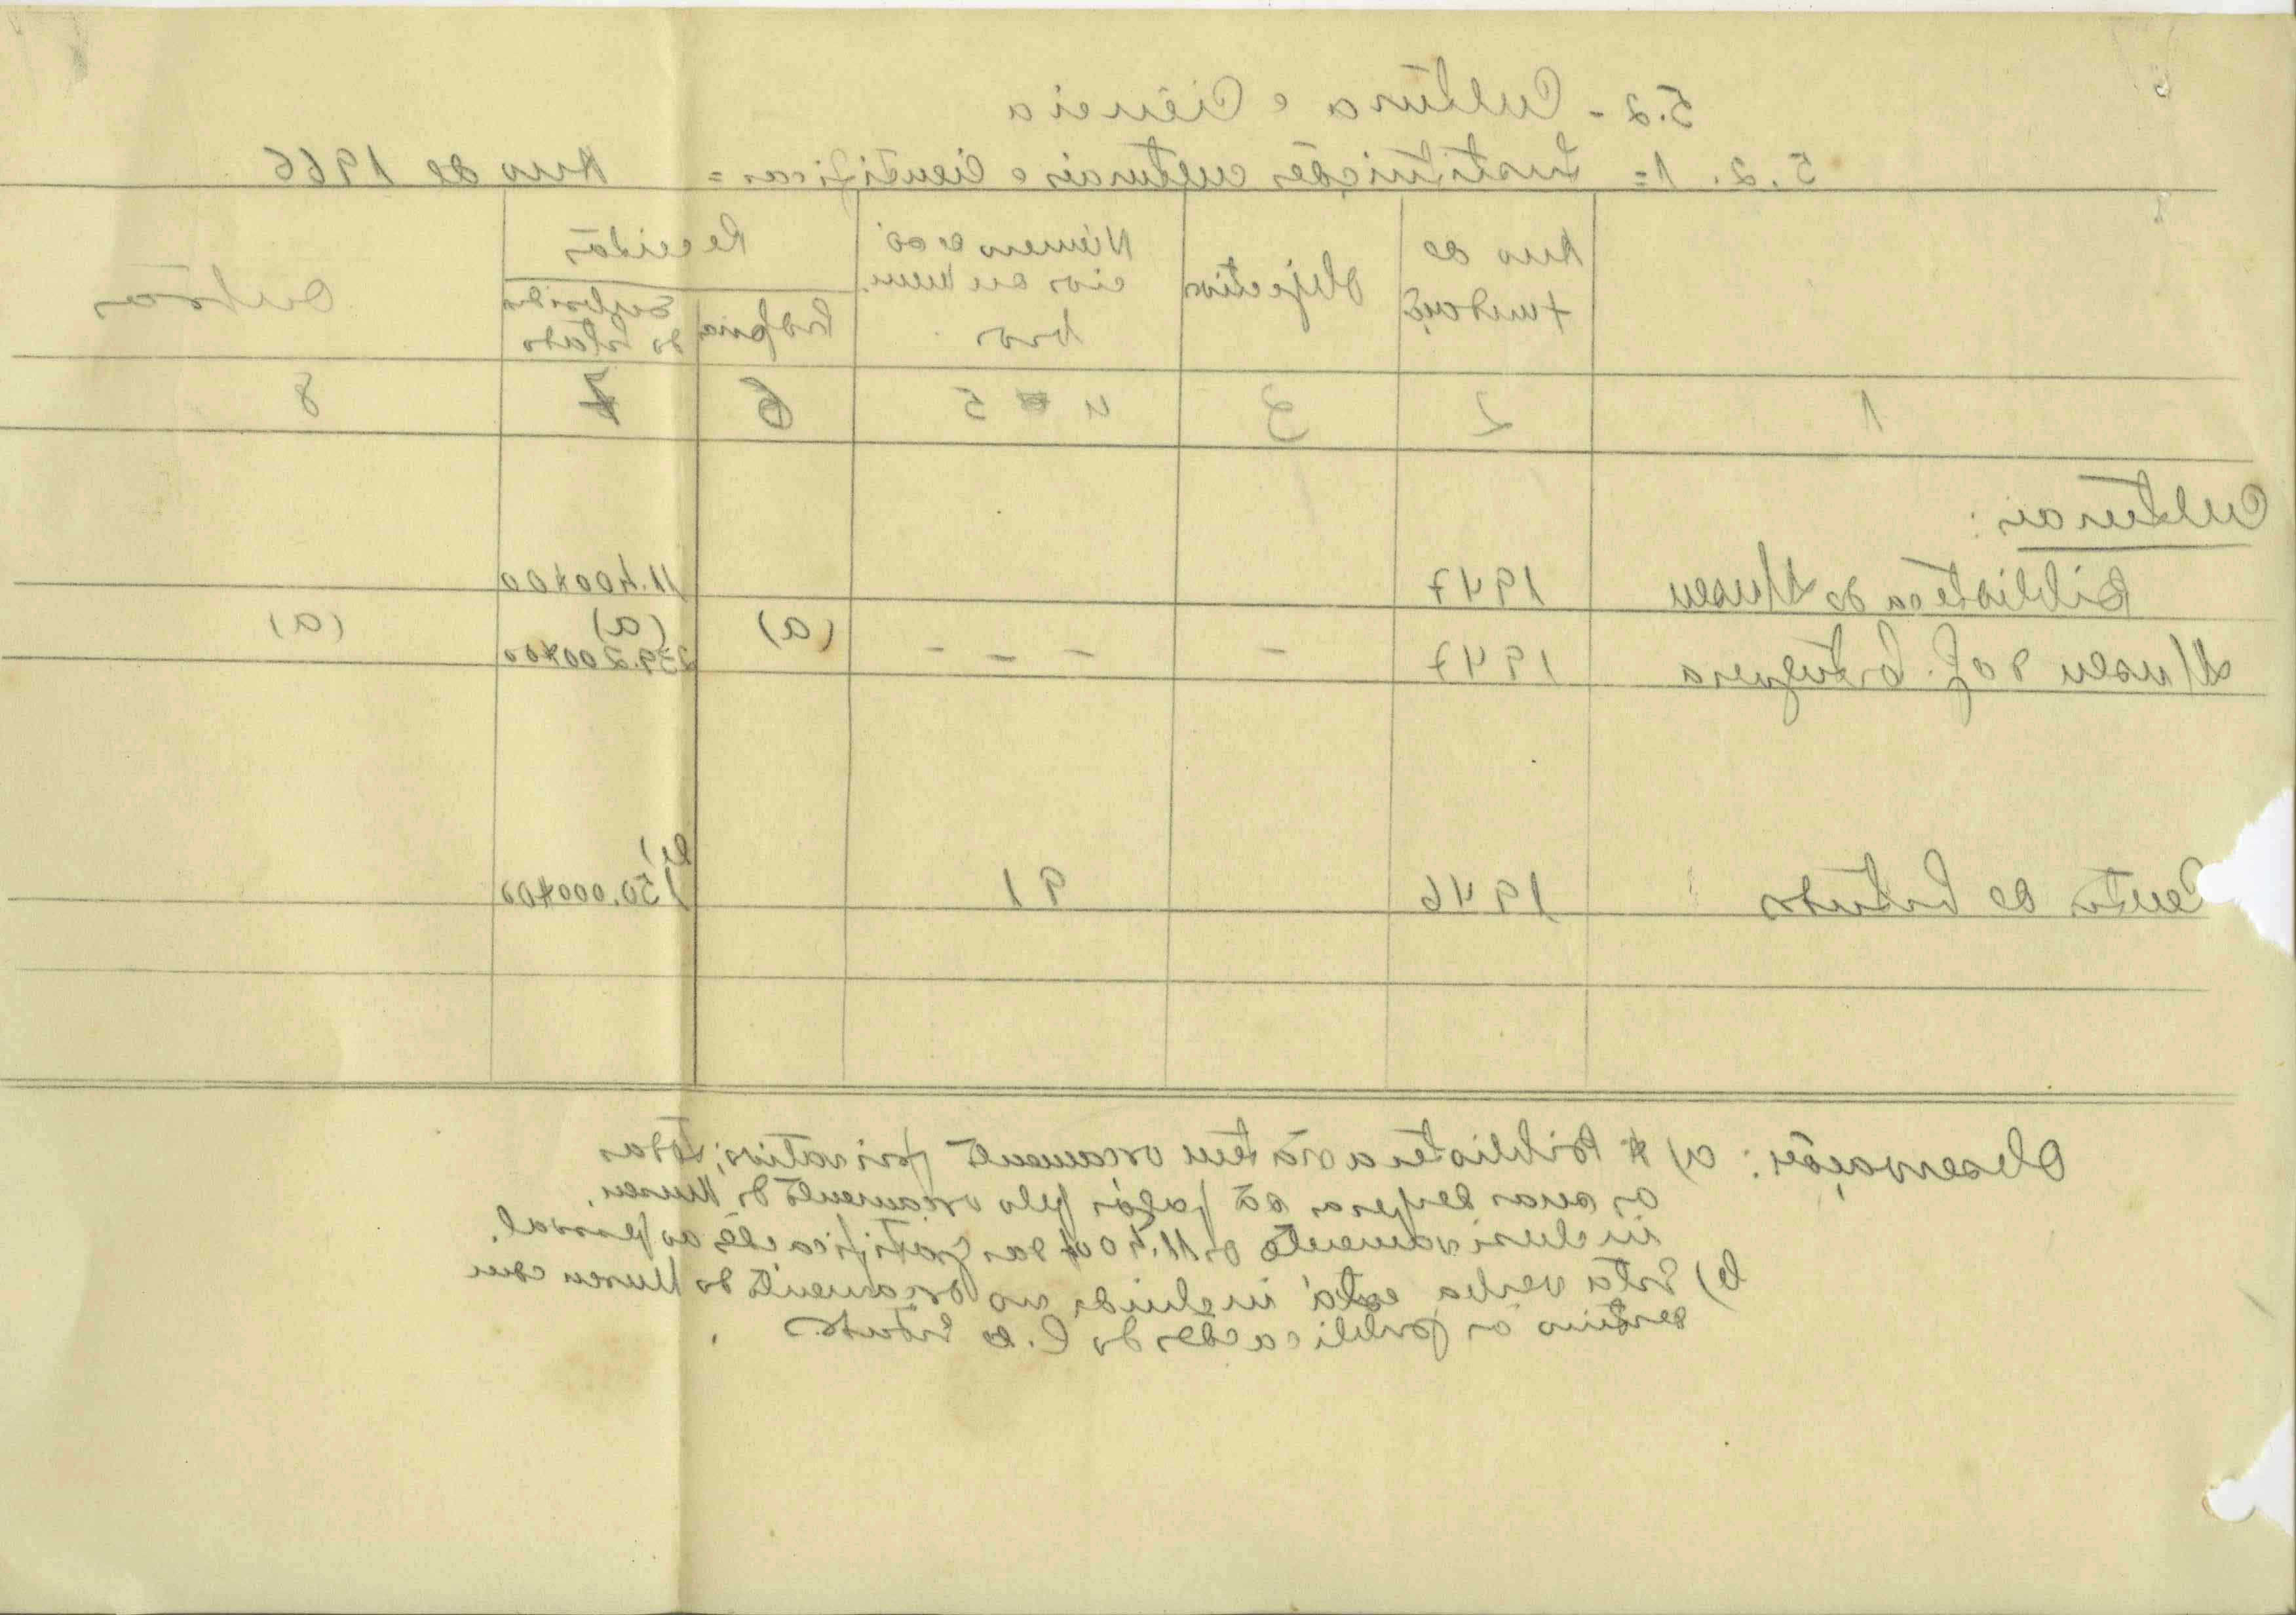 5.2 - Cultura e Ciência
5.2.1 = Instituições culturais e Científicas = Ano de 1966
Ano de fundaçã
Objectivos
Número de só-
cios ou mem-
bros
Receitas
Própria
Subsídios
do Estado
Outras
1 2 3 4 5 6 7 8
Culturais:
Biblioteca do Museu 1947 11.400$00
(a) (a) (a)
Museu da G. Portuguesa 1947 - - - - 239.200$00
b)
Centro de Estudos 1946 91 150.000$00
Observações: a) A Biblioteca não tem orçamento privativo; todas
as suas despesas são pagas pelo orçamento do Museu,
inclusivamente os 11.400$ das gratificações ao pessoal.
b) Esta verba está incluida no orçamento do Museu com
destino às publicações do C. de Estudos.